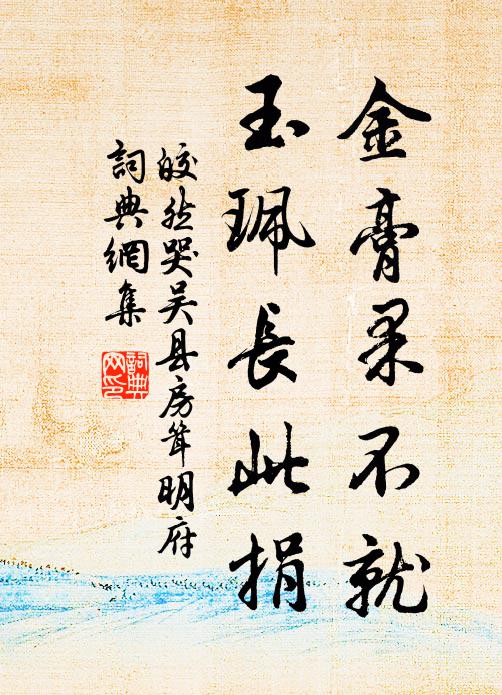 金膏果不就
玉珮長此捐
皎然哭吴县房耸明府
詞典網集
詞典
网印